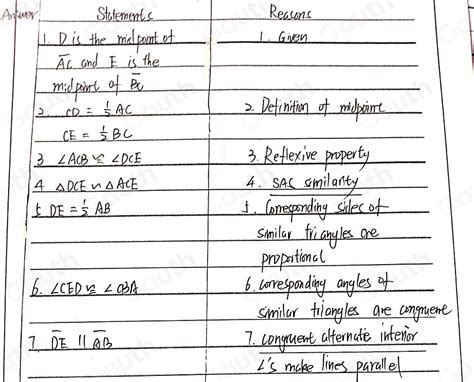 Answer Statements Reasons
1. D is the midpoint of 1. Given
AC and E is the
midpoint of BC
2. CD = 1/2 AC 2. Definition of midpoint
CE = 1/2 BC
3 ∠ACB ≅ ∠DCE 3. Reflexive property
4 △DCE ∽ △ACE 4. SAS similarity
5. DE = 1/2 AB 5. Corresponding sides of
similar triangles are
propotional
6. ∠CED ≅ ∠CBA 6. corresponding angles of
similar triangles are congruent
7. DE || AB 7. congruent alternate interior
∠'s make lines parallel